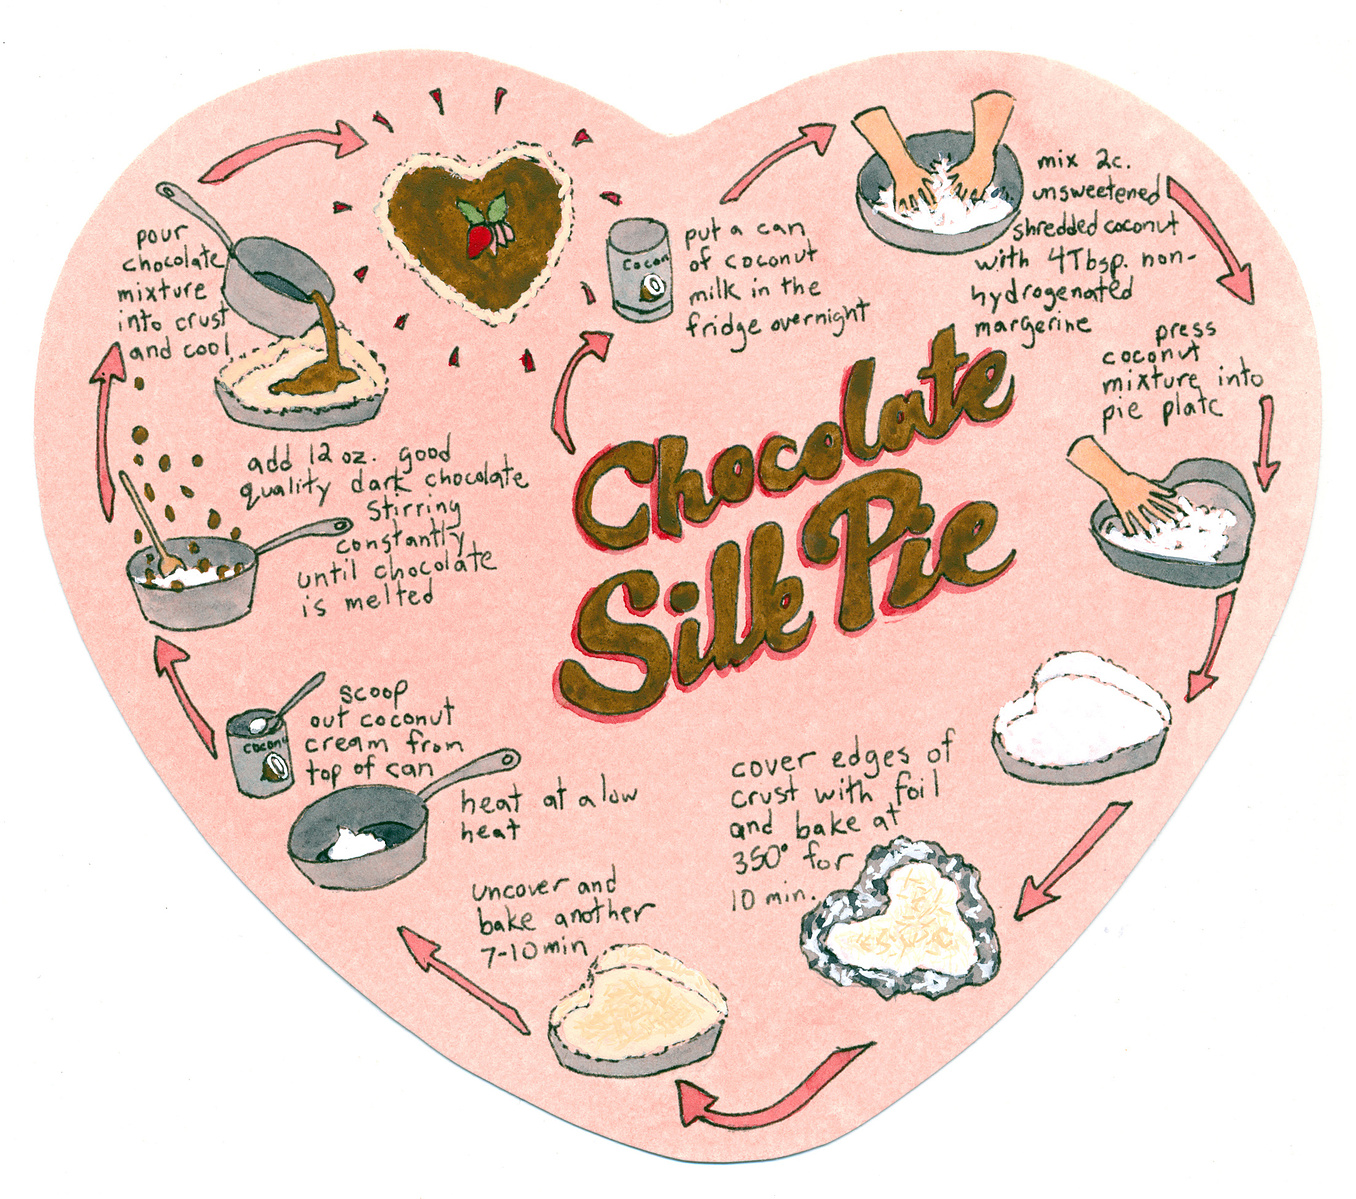 Chocolate
Silk Pie
put a can
of coconut
milk in the
fridge overnight
Cocon
mix 2c.
unsweetened
shredded coconut
with 4Tbsp. non-
hydrogenated
margerine
press
coconut
mixture into
pie plate
cover edges of
crust with foil
and bake at
350° for
10 min.
uncover and
bake another
7-10 min
scoop
out coconut
cream from
top of can
coconu
heat at a low
heat
add 12 oz. good
quality dark chocolate
stirring
constantly
until chocolate
is melted
pour
chocolate
mixture
into crust
and cool